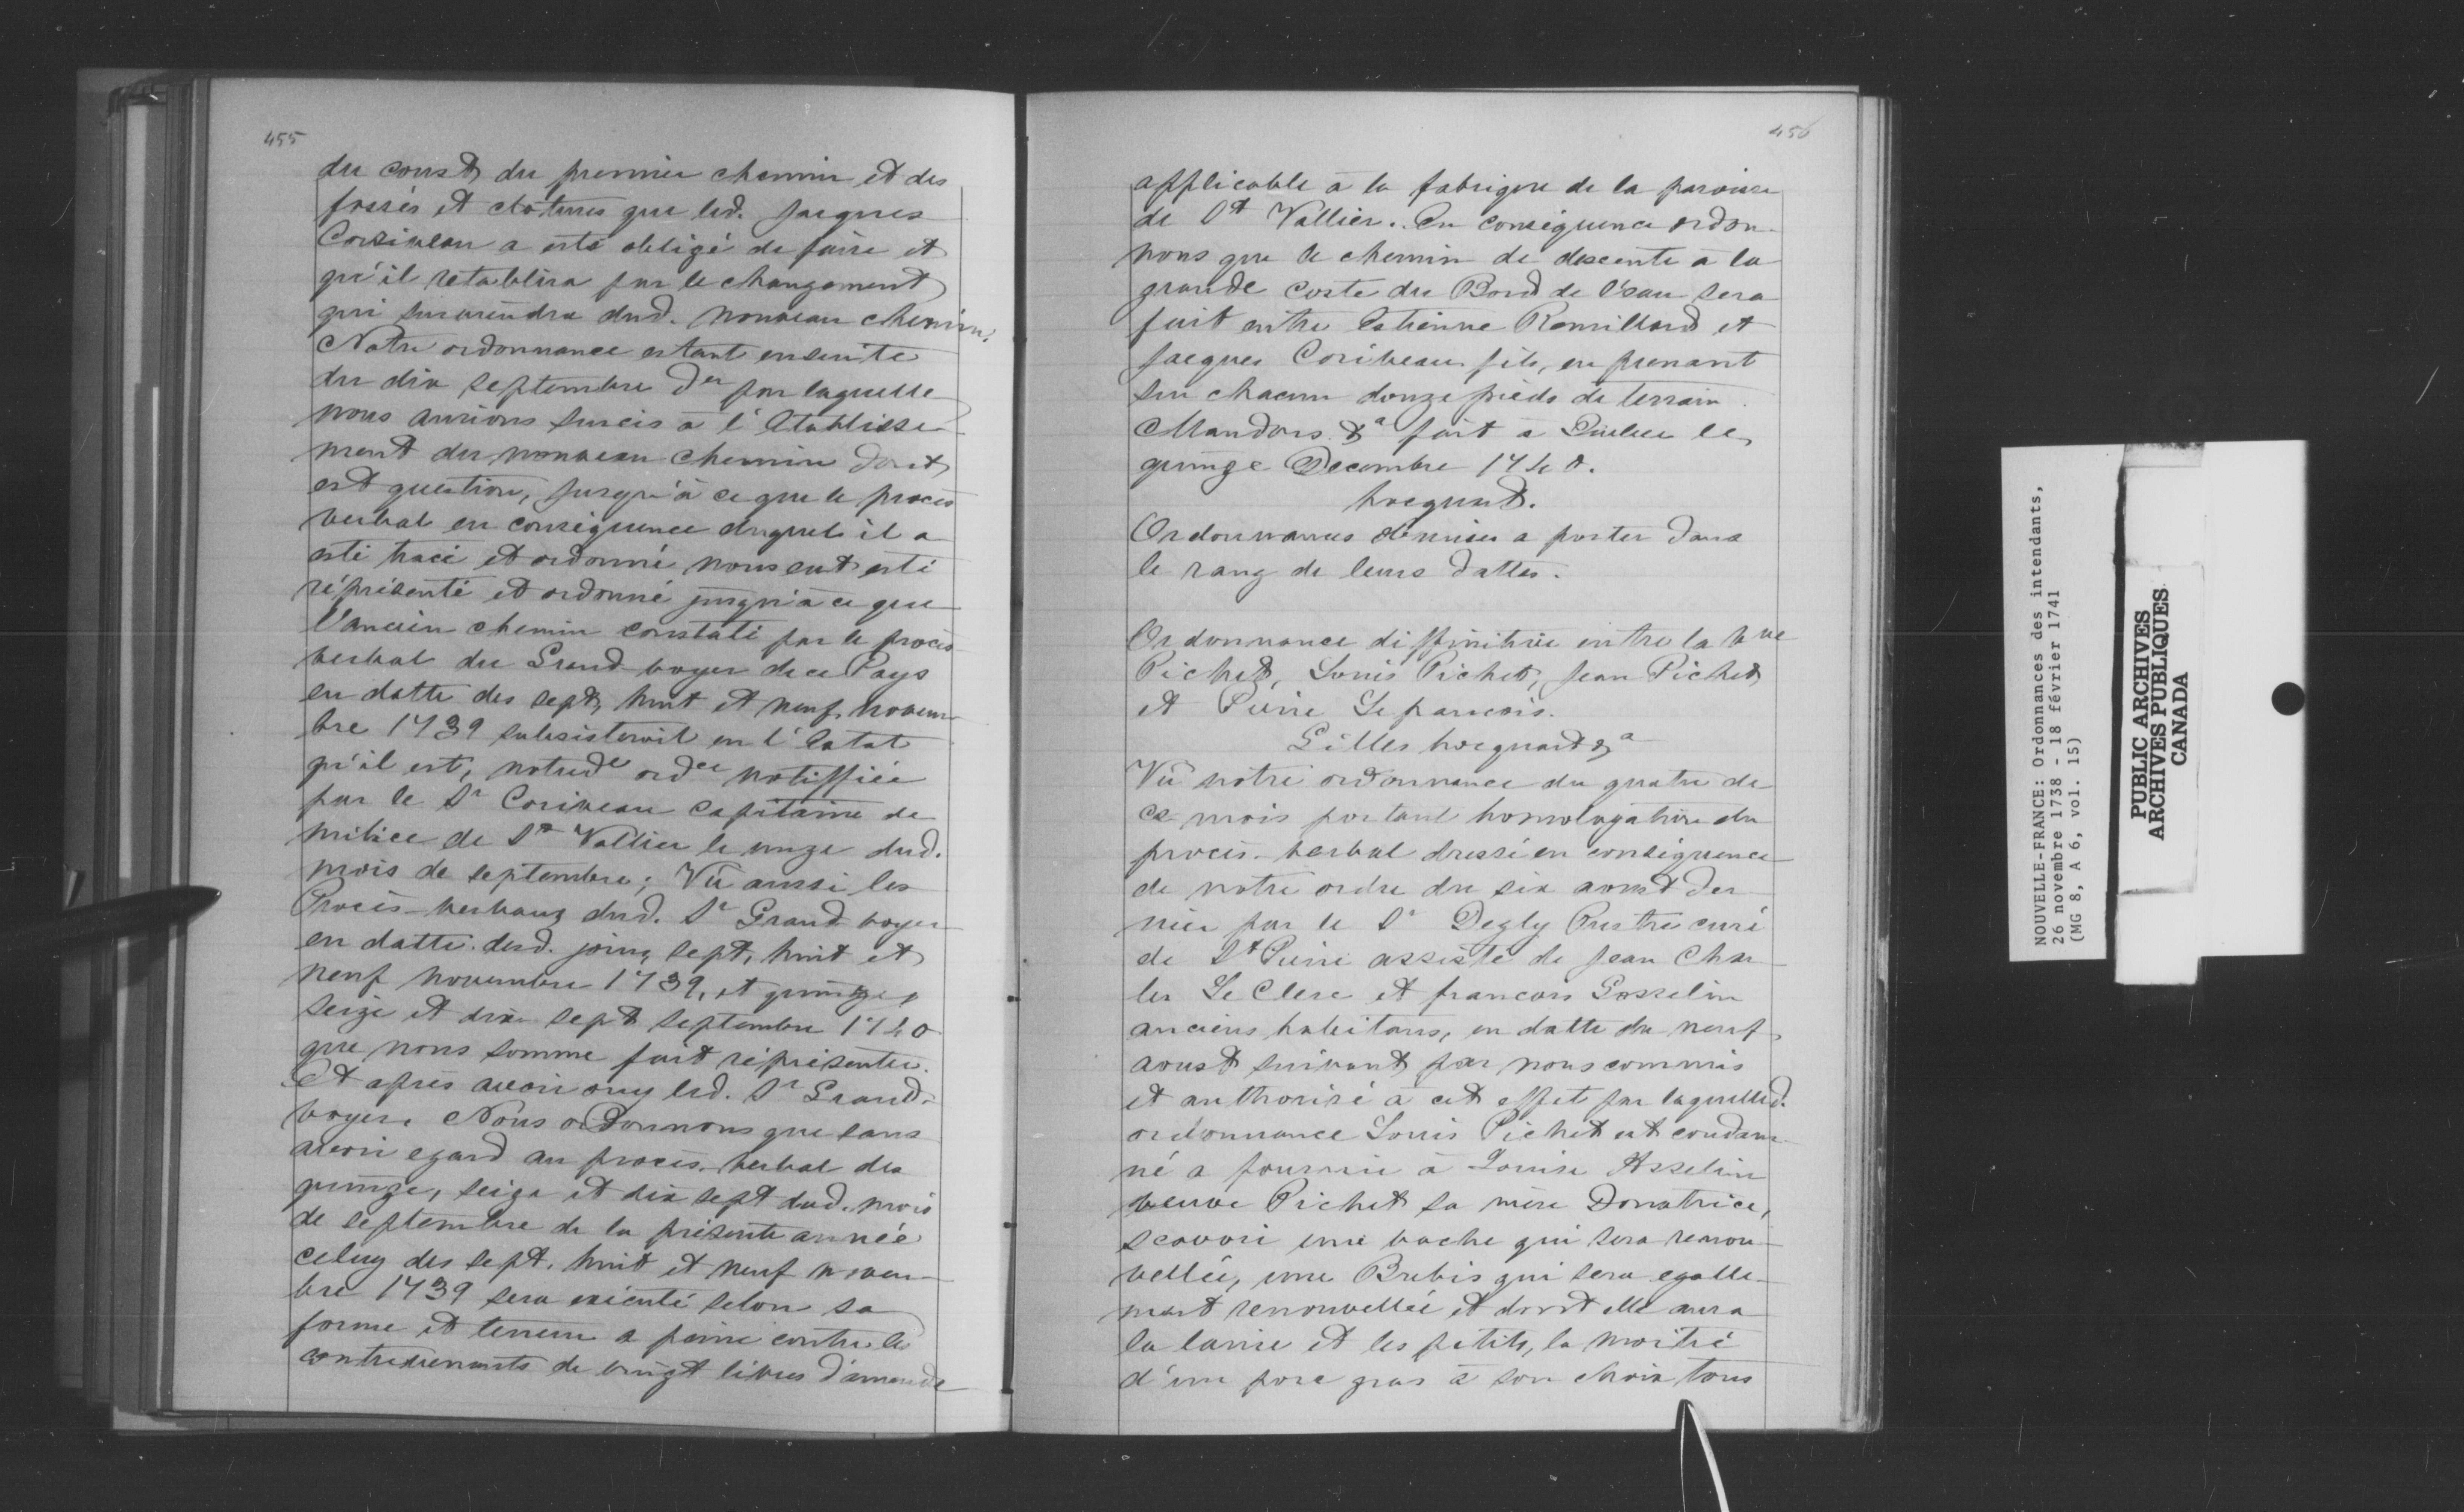 455
du coust du premier chemin et des
fossés et clotures que led. Jacques
Corriveau a esté obligé de faire et
qu'il retablira par le changement
qui surviendra dud. nouveau chemin.
Notre ordonnance estant ensuite
du dix septembre der par laquelle
nous aurions surcis à l'Etablisse-
ment du nouveau chemin dont
est question, jusqu'à ce que le procès
verbal en conséquence duquel il a
esté tracé et ordonné nous eut esté
réprésenté et ordonné jusqu'à ce que
l'ancien chemin constaté par le procès
verbal du Grand voyer de ce Pays
en datte des sept, huit et neuf novem-
bre 1739 subsisteroit en l'Estat
qu'il est, notred. ordce notiffiée
par le Sr Coriveau Capitaine de
milice de St Vallier le onze dud.
mois de septembre; Vû aussi les
Procès-verbaux dud. Sr Grand voyer
en datte desd. jours sept, huit et
neuf novembre 1739, et quinze,
seize et dix sept septembre 1740
que nous somme fait réprésenter.
Et après avoir ouy led. Sr Grand-
voyer. Nous ordonnons que sans
avoir egard au procès-verbal des
quinze, seize et dix sept dud. mois
de septembre de la présente année
celuy des sept, huit et neuf novem-
bre 1739 sera exécuté selon sa
forme et teneur a peine contre les
contrevenants de vingt livres d'amende
456
applicable à la fabrique de la paroisse
de St Vallier. En conséquence ordon-
nons que le chemin de descente à la
grande coste du Bord de l'eau sera
fait entre Estienne Remillard et
Jacques Coriveau fils, en prenant
sur chacun douze pieds de terrain.
Mandons &a fait a Quebec le
quinze Decembre 1740.
hocquart.
Ordonnances a porter dans
le rang de leurs dattes.
Ordonnance diffinitive entre la Vve
Pichet, Louis Pichet, Jean Pichet
et Pierre Le francois.
Gilles hocquart &a
Vû notre ordonnance du quatre de
ce mois portant homologation du
procès-verbal dressé en conséquence
de notre ordre du six aoust der-
nier par le Sr Degly Prestre curé
de St Pierre assisté de Jean Char-
les Le Clerc et francois Gosselin
anciens habitans, en datte du neuf
aoust suivant par nous commis
et authorisé à cet effet par laquelled.
ordonnance Louis Pichet est condam-
né a fournir à Louise Asselin
veuve Pichet sa mère Donatrice,
scavoir une vache qui sera renou-
vellée, une Brebis qui sera egalle-
ment renouvellée et dont elle aura
la laine et les petits, la moitié
d'un porc gras à son choix tous
NOUVELLE-FRANCE: Ordonnances des intendants,
26 novembre 1738 - 18 février 1741
(MG 8, A 6, vol. 15)
PUBLIC ARCHIVES
ARCHIVES PUBLIQUES
CANADA